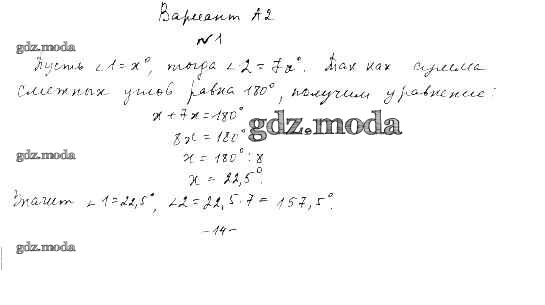 Вариант А2
№1
gdz.moda
Пусть ∠1=x°, тогда ∠2=7x°. Так как сумма
смежных углов равна 180°, получим уравнение:
x+7x=180°
gdz.moda
8x=180°
gdz.moda
x=180°:8
x=22,5°.
Значит ∠1=22,5°, ∠2=22,5·7=157,5°.
-14-
gdz.moda